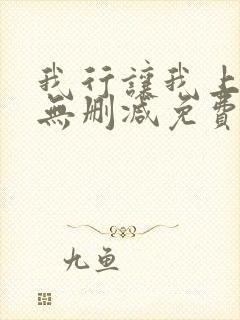 我行讓我上
無删减免費
九鱼